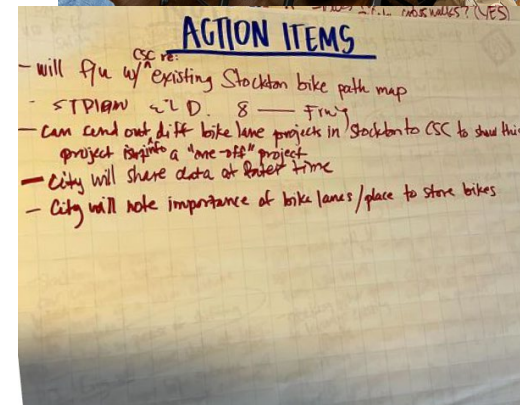 CROSSWALKS? (YES)
ACTION ITEMS
CSC re:
- will f/u w/ ^ existing Stockton bike path map
- 8 —
- can send out diff bike lane projects in Stockton to CSC to show this
project info a "one-off" project
- City will share data at later time
- City will note importance of bike lanes/place to store bikes